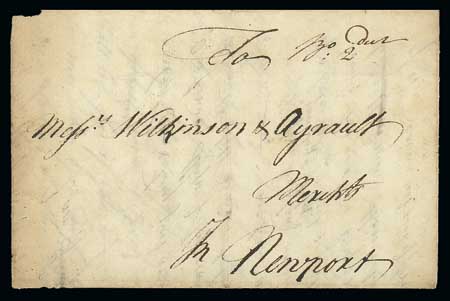 To
Messrs Wilkinson & Ayrault
Merchts
In Newport